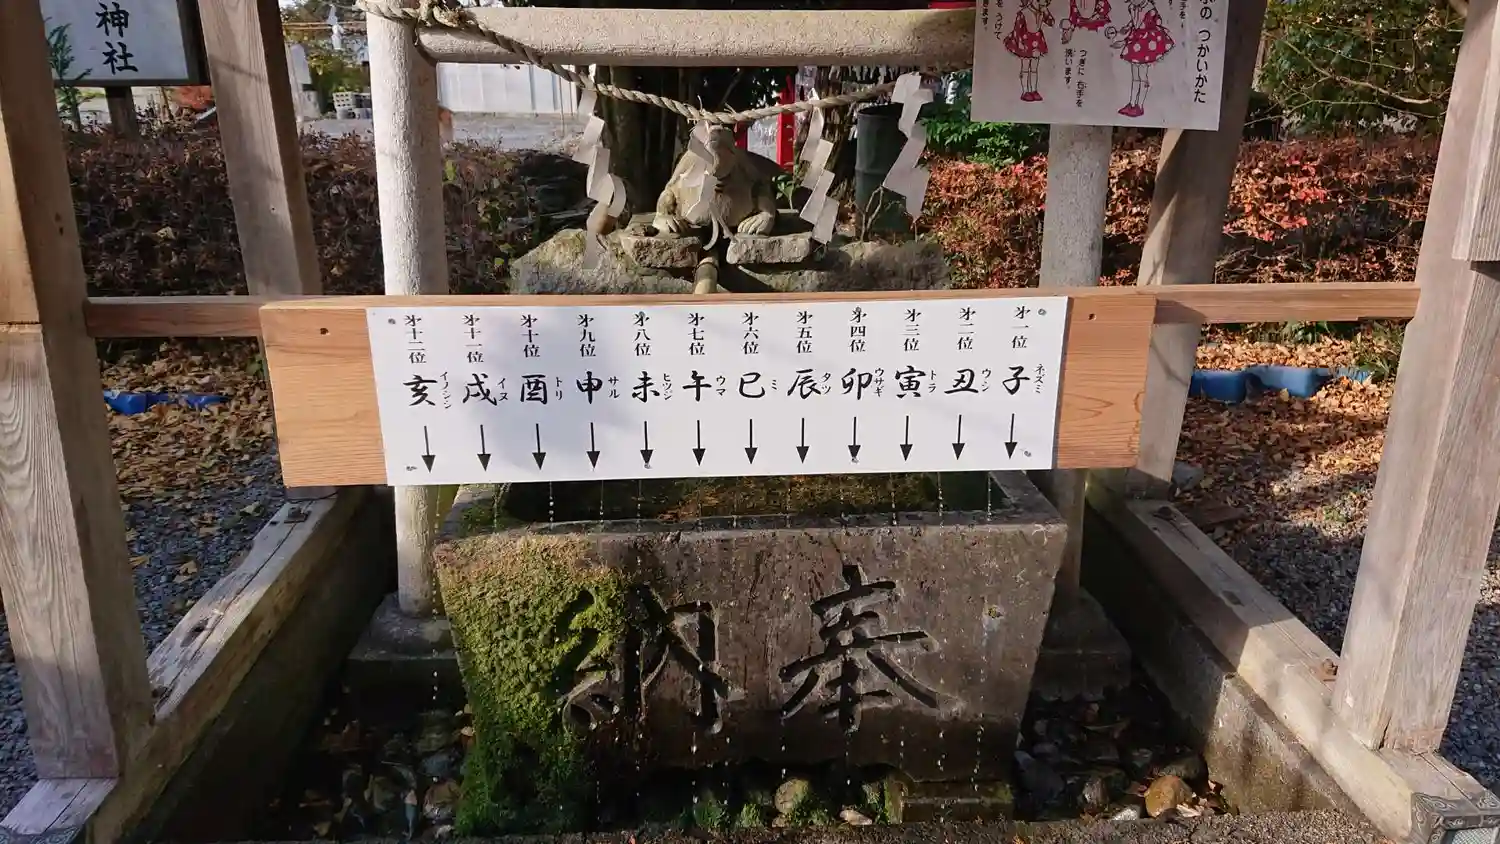 神社
の つかいかた
つぎに 右手を
洗います。
をうけて
きます。
第一位 子 ネズミ
第二位 丑 ウシ
第三位 寅 トラ
第四位 卯 ウサギ
第五位 辰 タツ
第六位 巳 ミ
第七位 午 ウマ
第八位 未 ヒツジ
第九位 申 サル
第十位 酉 トリ
第十一位 戌 イヌ
第十二位 亥 イノシシ
奉納